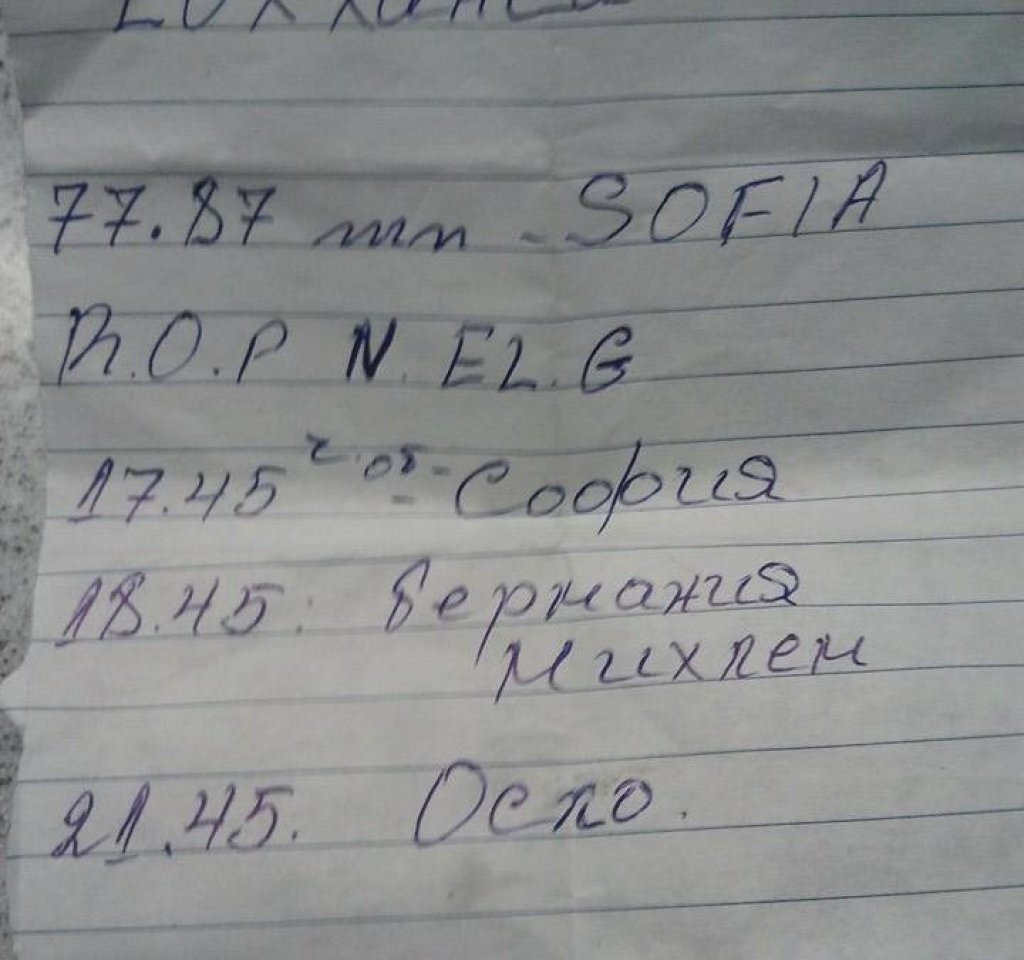 77.87 mm - SOFIA
R.O.P N. EL. G
17.45 ч. от - София
18.45. Германия
Михлен
21.45. Осло.